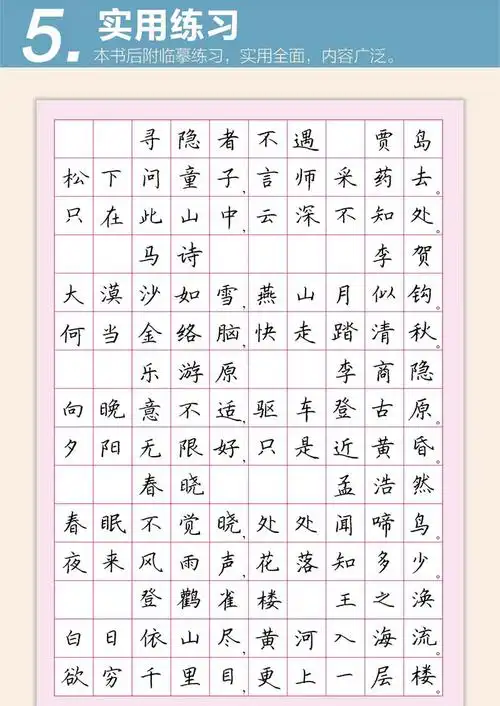 5. 实用练习
本书后附临摹练习，实用全面，内容广泛。
寻隐者不遇 贾岛
松下问童子，言师采药去。
只在此山中，云深不知处。
马诗 李贺
大漠沙如雪，燕山月似钩。
何当金络脑，快走踏清秋。
乐游原 李商隐
向晚意不适，驱车登古原。
夕阳无限好，只是近黄昏。
春晓 孟浩然
春眠不觉晓，处处闻啼鸟。
夜来风雨声，花落知多少。
登鹳雀楼 王之涣
白日依山尽，黄河入海流。
欲穷千里目，更上一层楼。